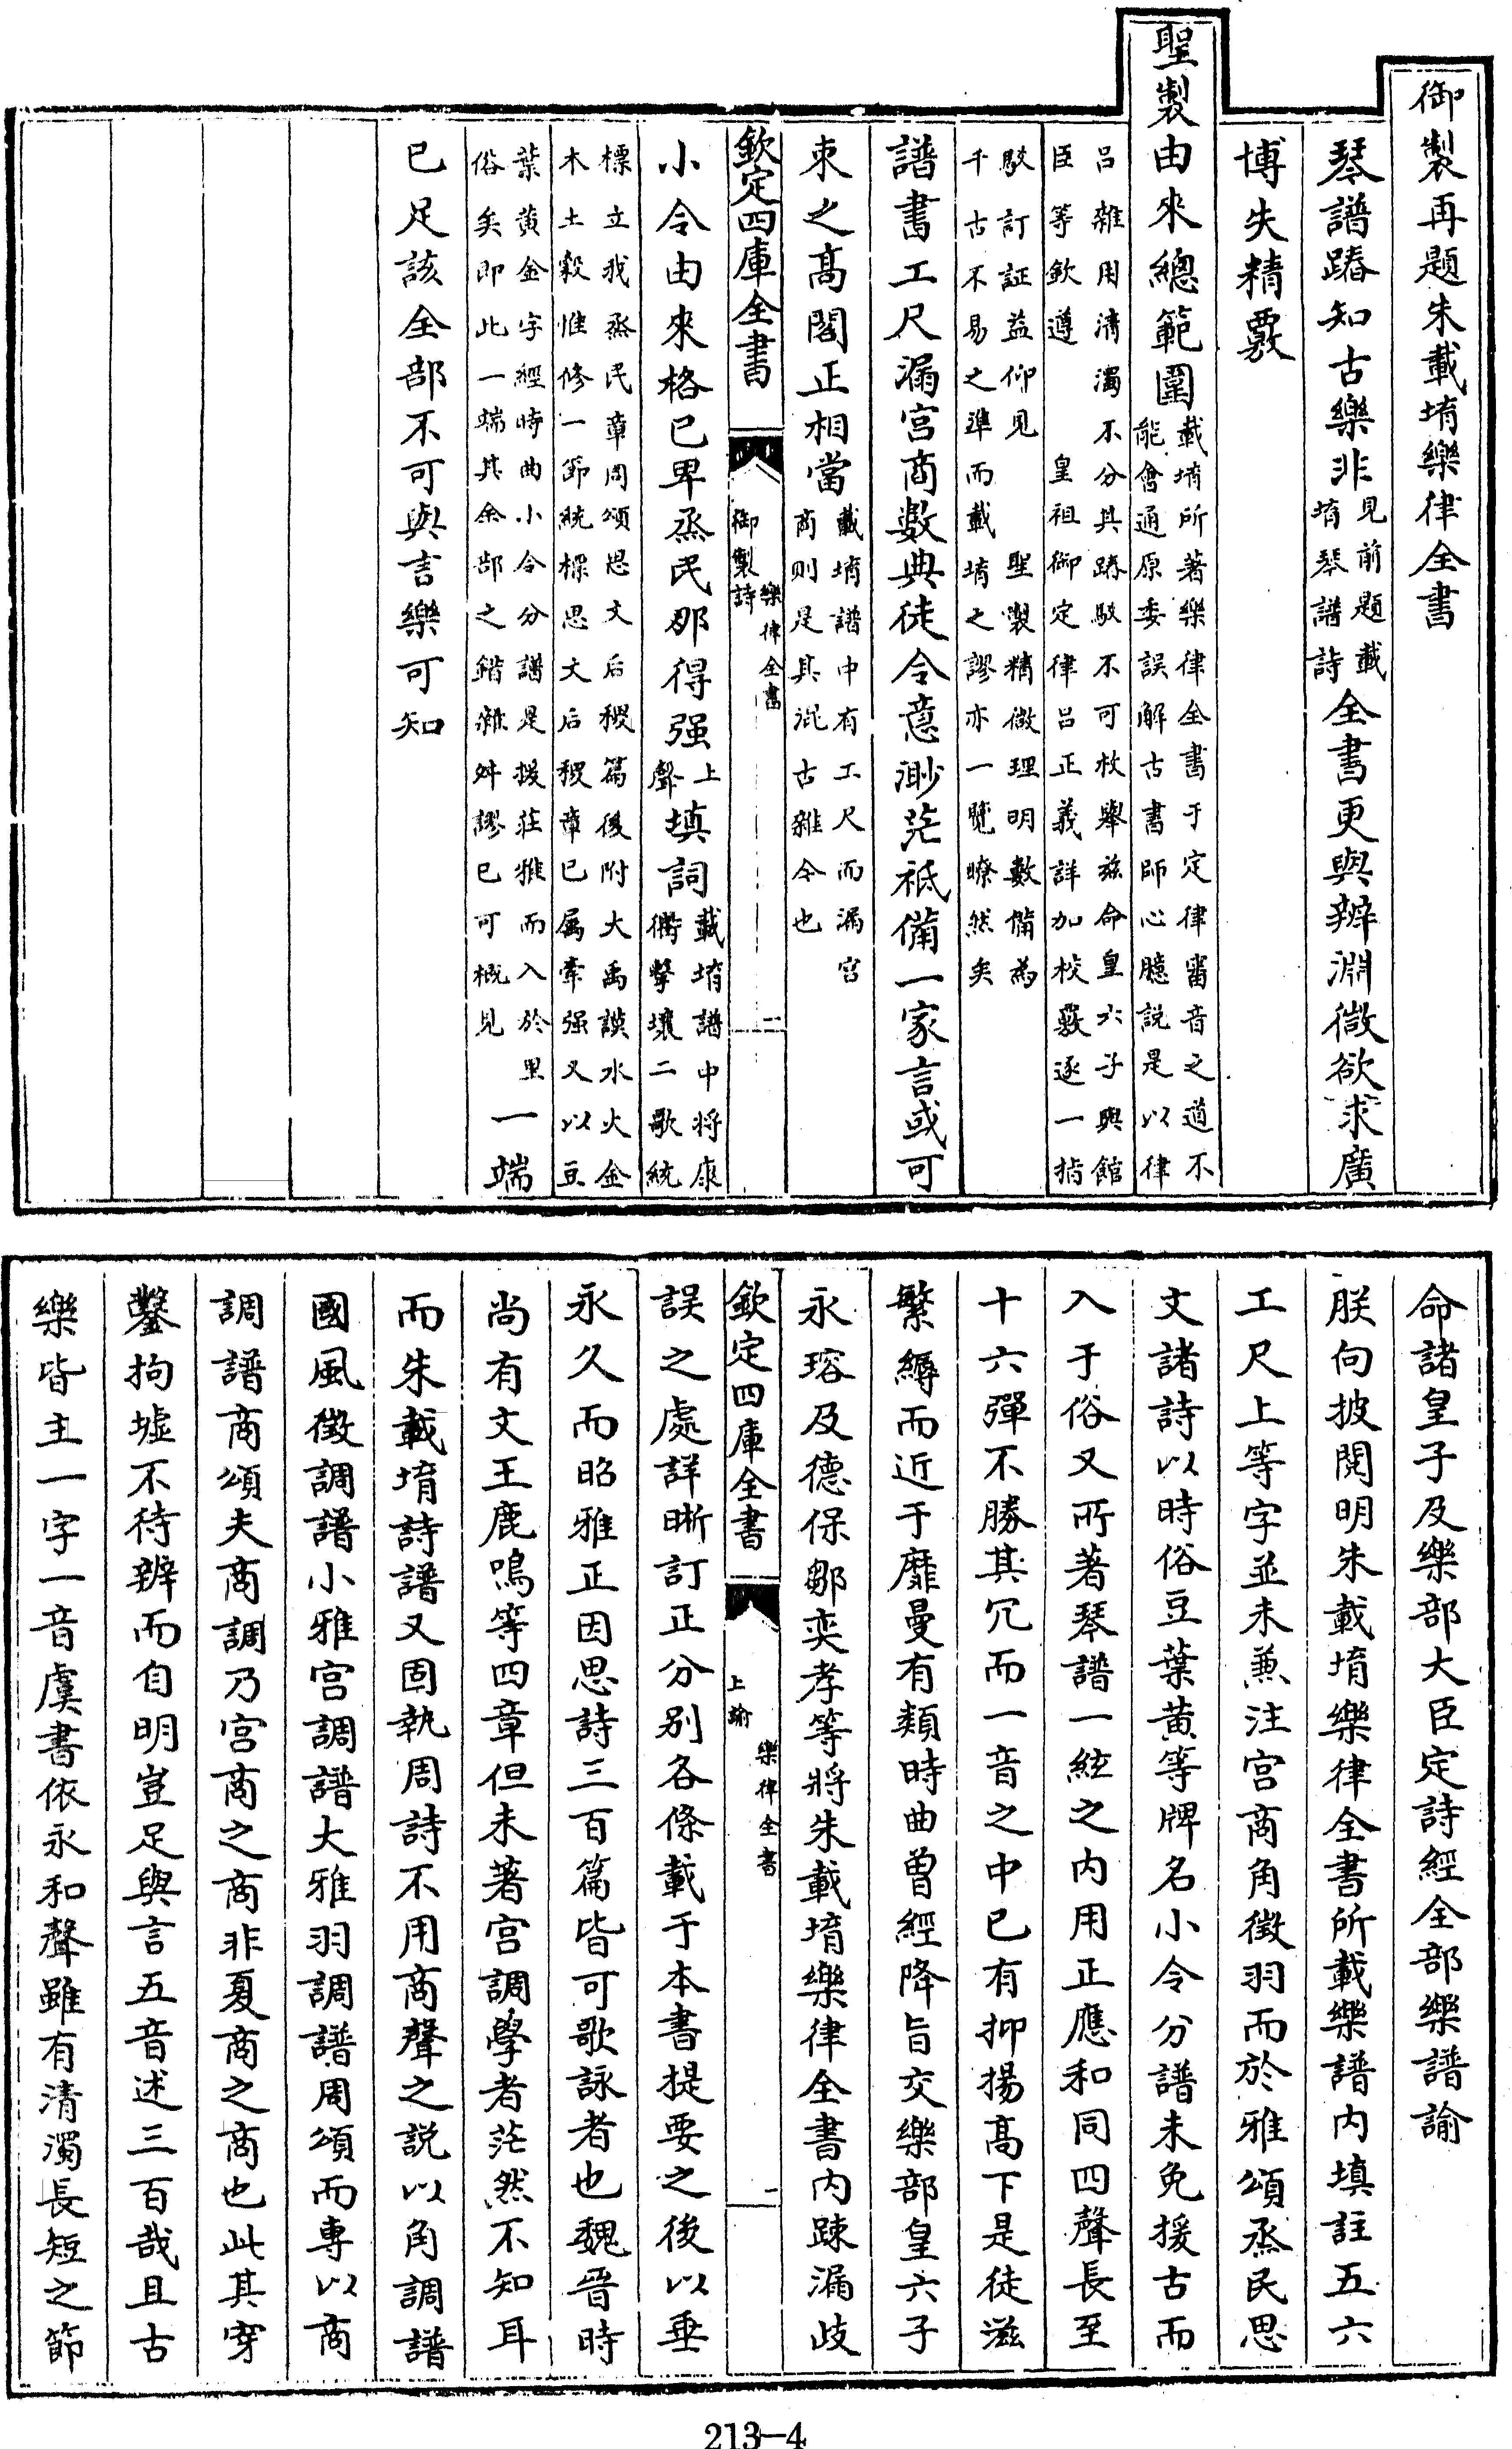 御製再題朱載堉樂律全書
琴譜踳知古樂非見前題載堉琴譜詩全書更與辨淵微欲求廣
博失精覈
聖製由來總範圍載堉所著樂律全書于定律審音之道不能會通原委誤解古書師心臆說是以律
呂雜用清濁不分其踳駁不可枚舉兹命皇六子與館臣等欽遵皇祖御定律呂正義詳加校覈逐一指
駁訂証益仰見聖製精微理明數備為千古不易之準而載堉之謬亦一覽瞭然矣
譜書工尺漏宮商數典徒令意渺茫祗備一家言或可
束之高閣正相當載堉譜中有工尺而漏宮商則是其泥古雜今也
欽定四庫全書
御製詩 樂律全書
二
小令由來格已卑烝民那得强上聲填詞載堉譜中將康衢擊壤二歌統
標立我烝民章周頌思文后稷篇後附大禹謨水火金木土穀惟修一節統標思文后稷章已屬牽强又以豆
葉黄金字經時曲小令分譜是援莊雅而入於里俗矣即此一端其余部之錯雜舛謬已可概見一端
已足該全部不可與言樂可知
命諸皇子及樂部大臣定詩經全部樂譜諭
朕向披閱明朱載堉樂律全書所載樂譜內填註五六
工尺上等字並未兼注宮商角徵羽而於雅頌烝民思
文諸詩以時俗豆葉黄等牌名小令分譜未免援古而
入于俗又所著琴譜一絃之內用正應和同四聲長至
十六彈不勝其冗而一音之中已有抑揚高下是徒滋
繁縟而近于靡曼有類時曲曾經降旨交樂部皇六子
永瑢及德保鄒奕孝等將朱載堉樂律全書內踈漏歧
欽定四庫全書
上諭 樂律全書
一
誤之處詳晰訂正分別各條載于本書提要之後以垂
永久而昭雅正因思詩三百篇皆可歌詠者也魏晉時
尚有文王鹿鳴等四章但未著宮調學者茫然不知耳
而朱載堉詩譜又固執周詩不用商聲之說以角調譜
國風徵調譜小雅宮調譜大雅羽調譜周頌而專以商
調譜商頌夫商調乃宮商之商非夏商之商也此其穿
鑿拘墟不待辨而自明豈足與言五音述三百哉且古
樂皆主一字一音虞書依永和聲雖有清濁長短之節
213-4